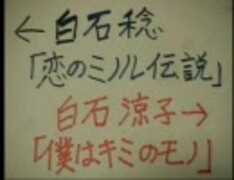 ← 白石 稔
「恋のミノル伝説」
白石 涼子 →
「僕はキミのモノ」